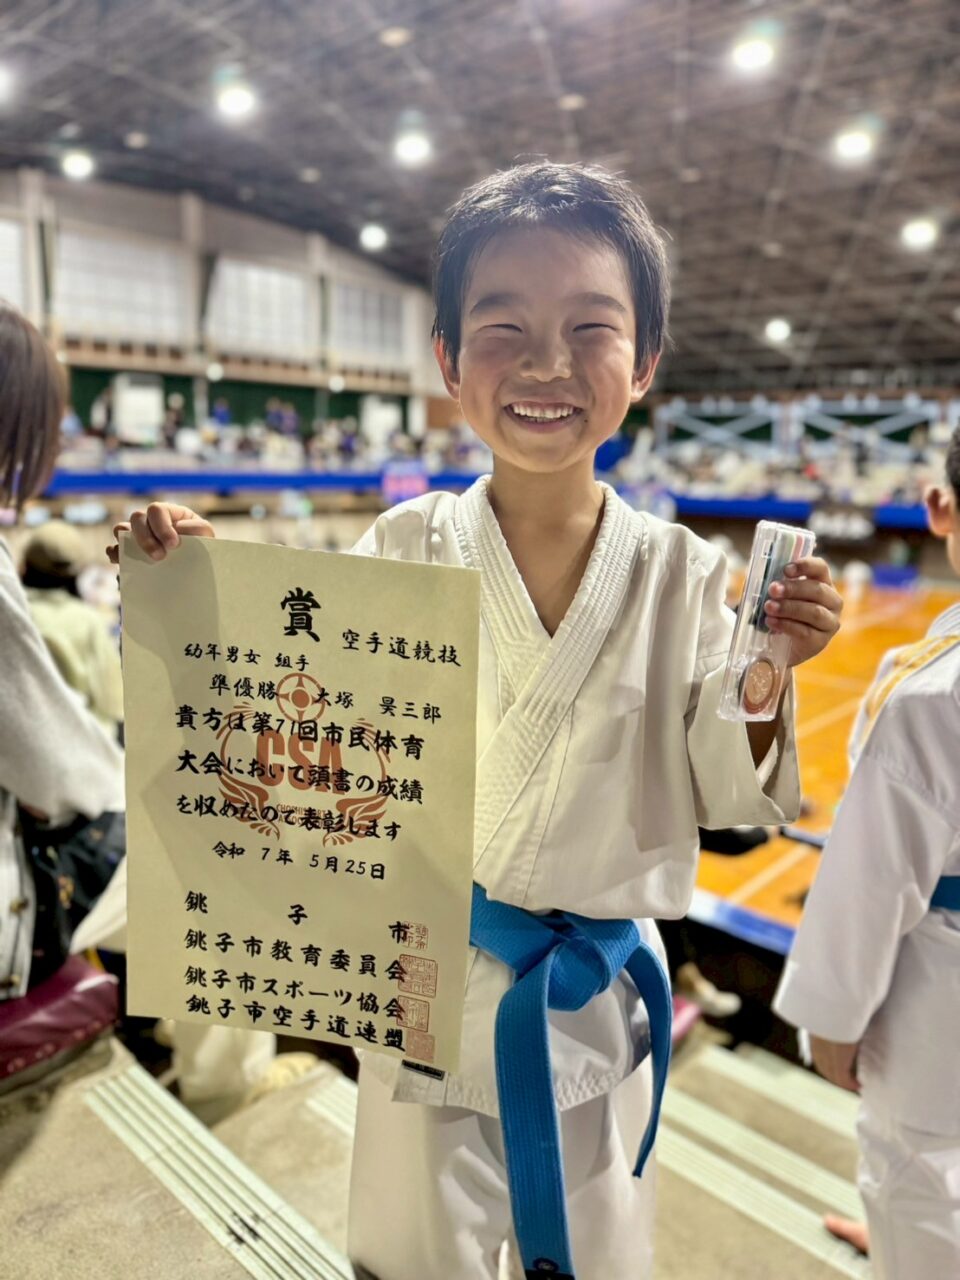 賞
空手道競技
幼年男女 組手
準優勝 大塚 昊三郎
貴方は第71回市民体育
大会において頭書の成績
を収めたので表彰します
CSA
令和 7年 5月25日
銚子市
銚子市教育委員会
銚子市スポーツ協会
銚子市空手道連盟